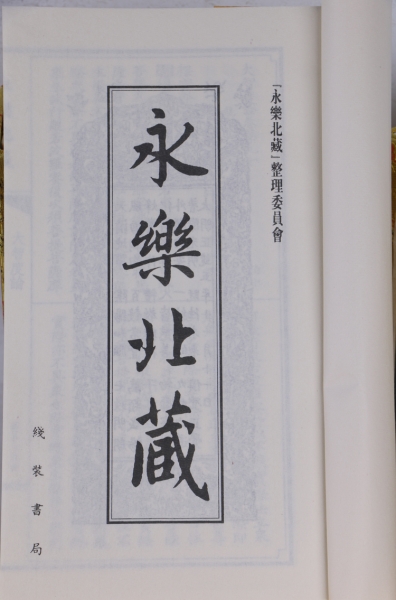 「永樂北藏」整理委員會
永樂北藏
綫裝書局